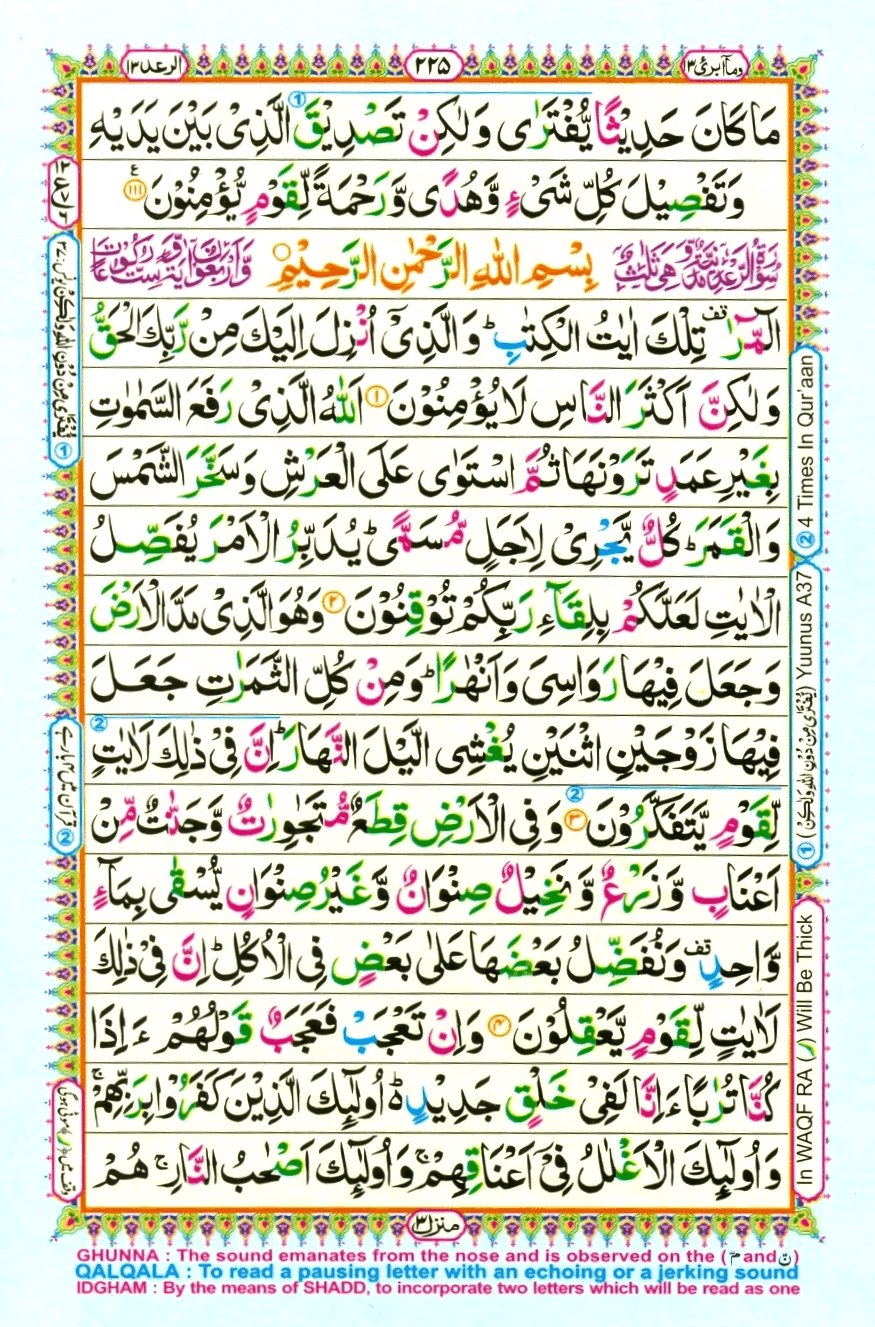 الرعد ١٣
٢٢٥
وما ابرئ ١٣
مَا كَانَ حَدِيْثًا يُّفْتَرٰى وَلٰكِنْ تَصْدِيْقَ الَّذِىْ بَيْنَ يَدَيْهِ
وَتَفْصِيْلَ كُلِّ شَىْءٍ وَّهُدًى وَّرَحْمَةً لِّقَوْمٍ يُّؤْمِنُوْنَ ۝١١١
سُوْرَةُ الرَّعْدِ مَدَنِيَّةٌ وَّهِىَ ثَلٰثٌ بِسْمِ اللّٰهِ الرَّحْمٰنِ الرَّحِيْمِ وَّاَرْبَعُوْنَ اٰيَةً وَّسِتُّ رُكُوْعَاتٍ
الٓمّٓرٰ ۚقف تِلْكَ اٰيٰتُ الْكِتٰبِ ؕ وَالَّذِىْۤ اُنْزِلَ اِلَيْكَ مِنْ رَّبِّكَ الْحَقُّ
وَلٰكِنَّ اَكْثَرَ النَّاسِ لَا يُؤْمِنُوْنَ ۝١ اَللّٰهُ الَّذِىْ رَفَعَ السَّمٰوٰتِ
بِغَيْرِ عَمَدٍ تَرَوْنَهَا ثُمَّ اسْتَوٰى عَلَى الْعَرْشِ وَسَخَّرَ الشَّمْسَ
وَالْقَمَرَ ؕ كُلٌّ يَّجْرِىْ لِاَجَلٍ مُّسَمًّى ؕ يُدَبِّرُ الْاَمْرَ يُفَصِّلُ
الْاٰيٰتِ لَعَلَّكُمْ بِلِقَآءِ رَبِّكُمْ تُوْقِنُوْنَ ۝٢ وَهُوَ الَّذِىْ مَدَّ الْاَرْضَ
وَجَعَلَ فِيْهَا رَوَاسِىَ وَاَنْهٰرًا ؕ وَمِنْ كُلِّ الثَّمَرٰتِ جَعَلَ
فِيْهَا زَوْجَيْنِ اثْنَيْنِ يُغْشِى الَّيْلَ النَّهَارَ ؕ اِنَّ فِىْ ذٰلِكَ لَاٰيٰتٍ
لِّقَوْمٍ يَّتَفَكَّرُوْنَ ۝٣ وَفِى الْاَرْضِ قِطَعٌ مُّتَجٰوِرٰتٌ وَّجَنّٰتٌ مِّنْ
اَعْنَابٍ وَّزَرْعٌ وَّنَخِيْلٌ صِنْوَانٌ وَّغَيْرُ صِنْوَانٍ يُّسْقٰى بِمَآءٍ
وَّاحِدٍ ۚقف وَنُفَضِّلُ بَعْضَهَا عَلٰى بَعْضٍ فِى الْاُكُلِ ؕ اِنَّ فِىْ ذٰلِكَ
لَاٰيٰتٍ لِّقَوْمٍ يَّعْقِلُوْنَ ۝٤ وَاِنْ تَعْجَبْ فَعَجَبٌ قَوْلُهُمْ ءَاِذَا
كُنَّا تُرٰبًا ءَاِنَّا لَفِىْ خَلْقٍ جَدِيْدٍ ؕ۬ اُولٰٓئِكَ الَّذِيْنَ كَفَرُوْا بِرَبِّهِمْ ۚ
وَاُولٰٓئِكَ الْاَغْلٰلُ فِىْۤ اَعْنَاقِهِمْ ۚ وَاُولٰٓئِكَ اَصْحٰبُ النَّارِ ۚ هُمْ
منزل ٣
② 4 Times In Qur'aan
① (يُّفْتَرٰى مِنْ دُوْنِ اللّٰهِ وَلٰكِنْ) Yuunus A37
In WAQF RA (ر) Will Be Thick
يُّفْتَرٰى مِنْ دُوْنِ اللّٰهِ وَلٰكِنْ یونس ٣٧ ①
قرآن میں ۴ بار ہے ②
وقف میں (ر) موٹی ہوگی
GHUNNA : The sound emanates from the nose and is observed on the (مّ and نّ)
QALQALA : To read a pausing letter with an echoing or a jerking sound
IDGHAM : By the means of SHADD, to incorporate two letters which will be read as one